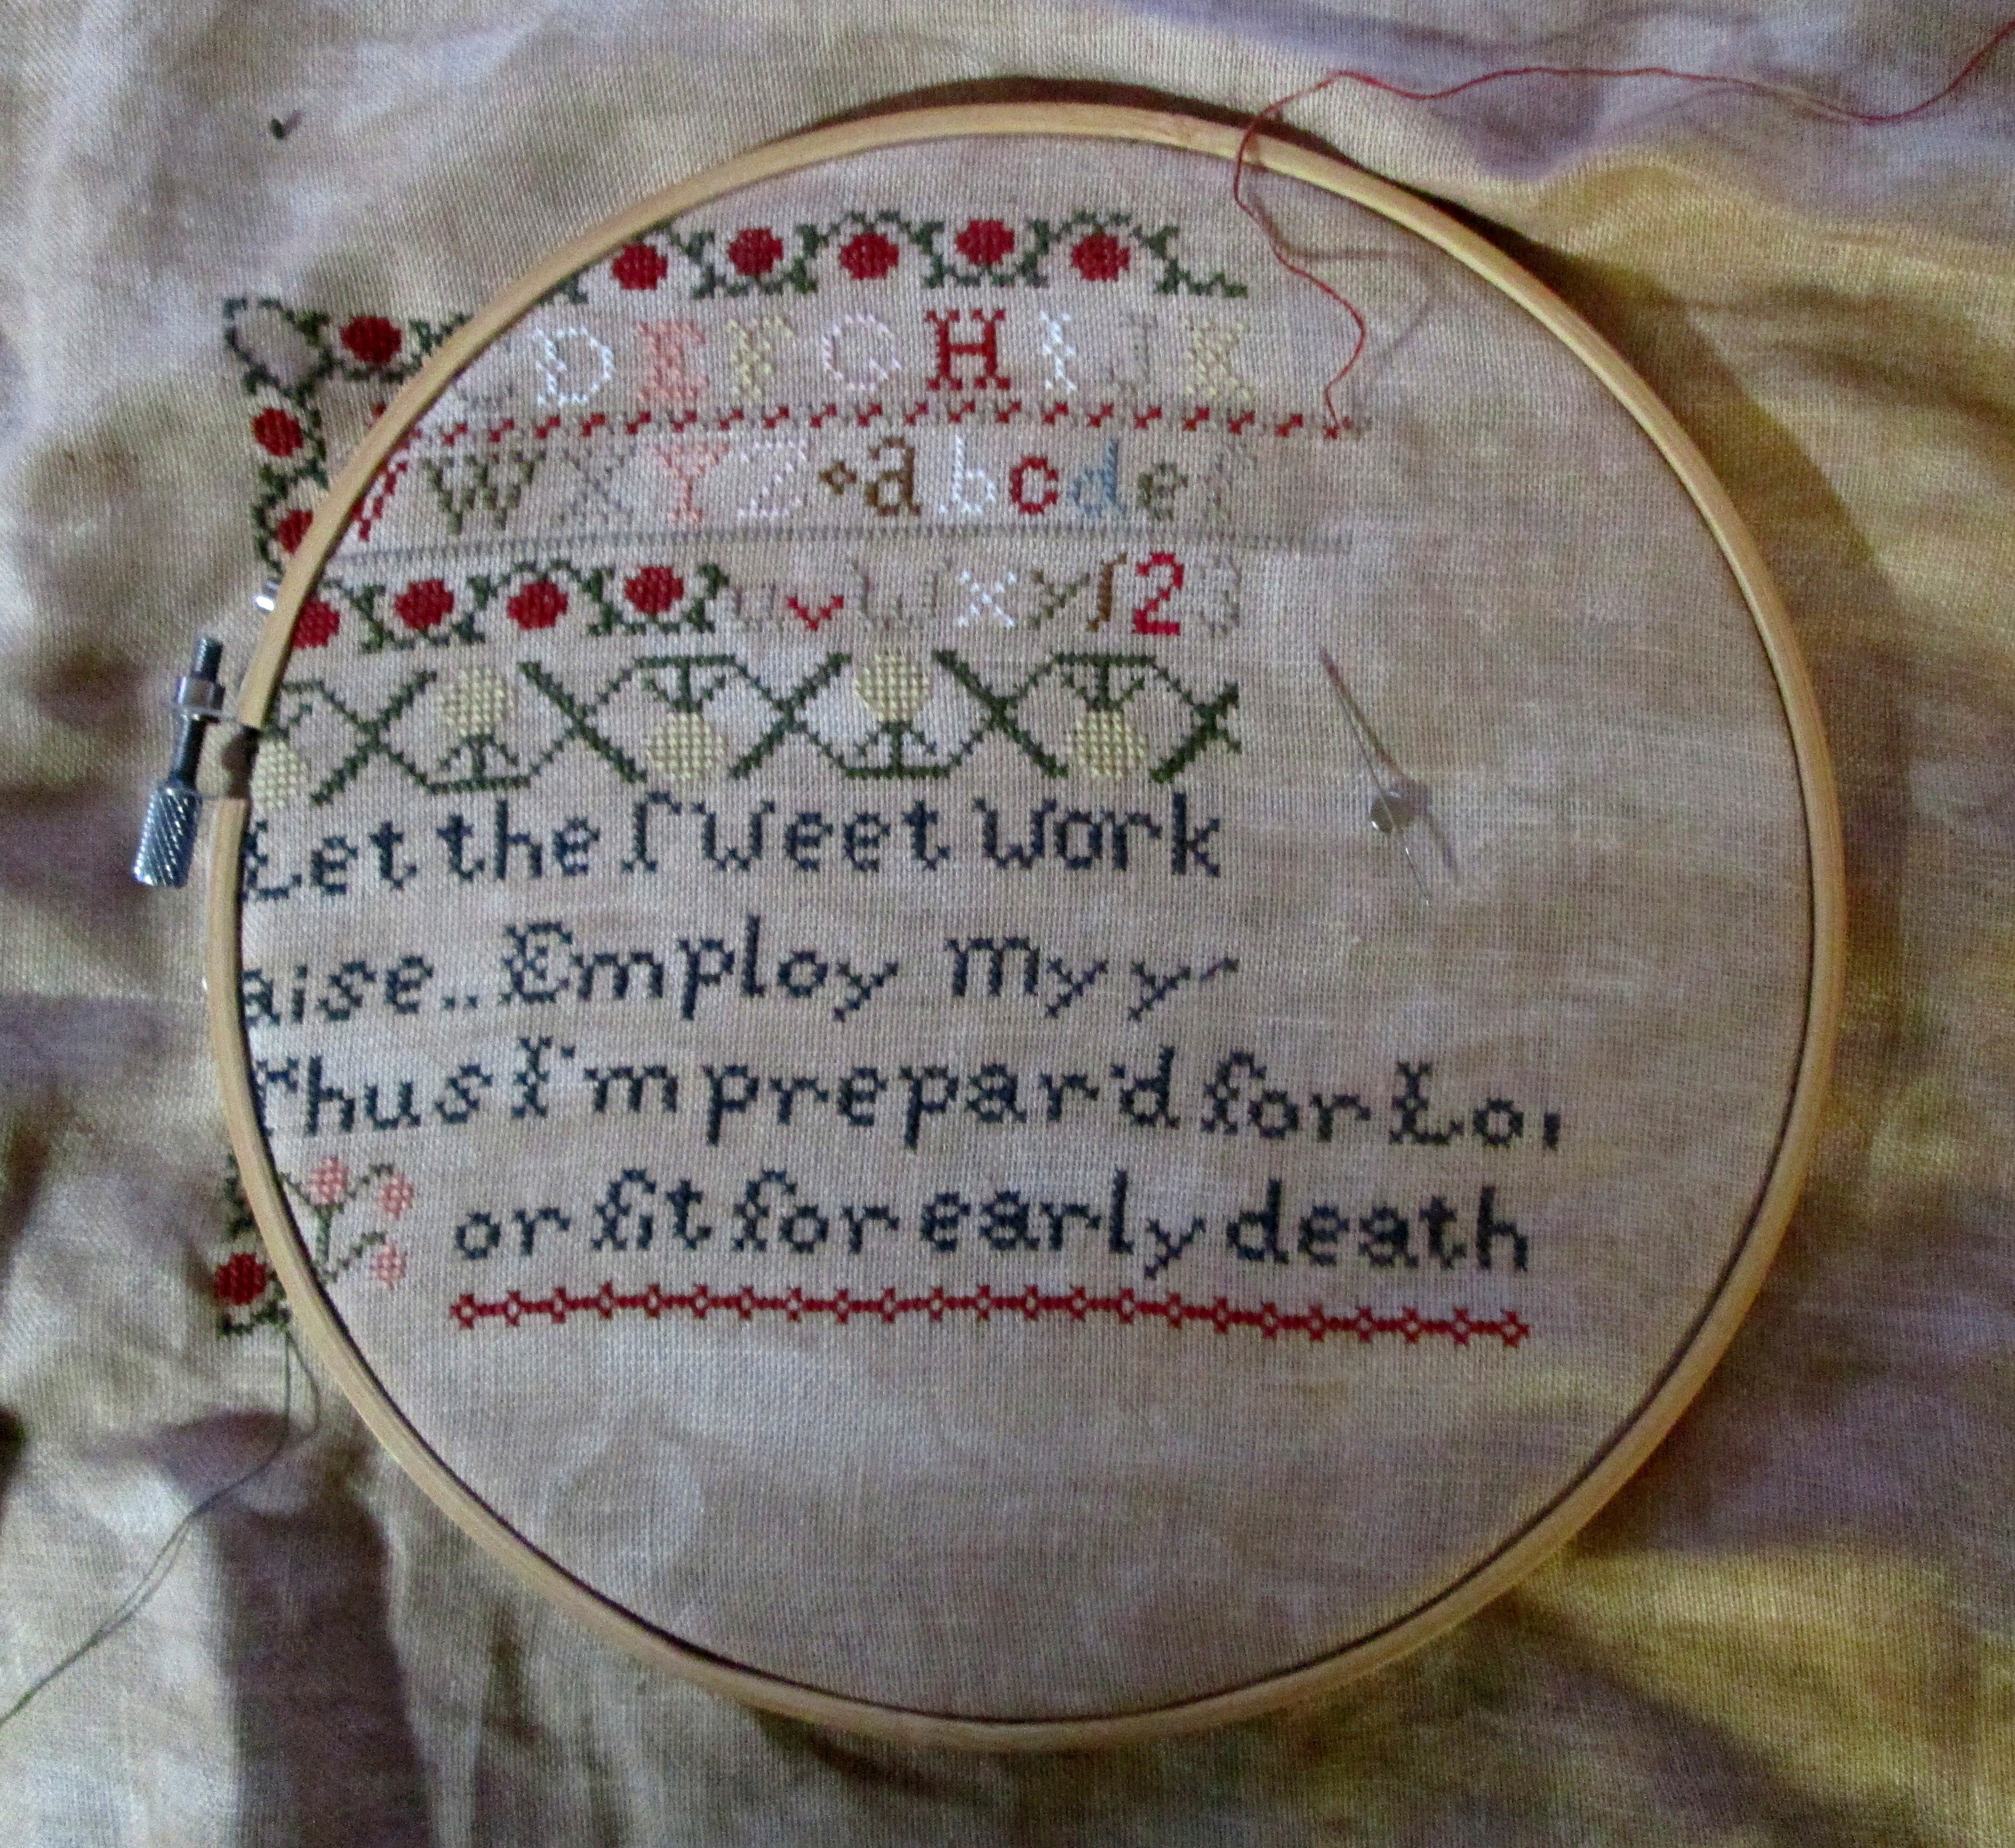 D E F G H I J K
V W X Y Z a b c d e f
u v w x y ſ 2 3
Let the ſweet Work
aise.. Employ my y
Thus I'm prepar'd for Lo
or fit for early death